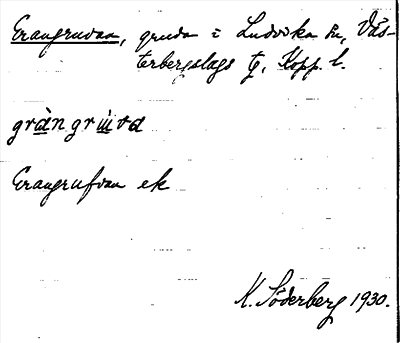 Grangruvan, gruva i Ludvika sn, Väs-
terbergslags tg, Kopp. l.
grà̲ngrùvα
Grangrufvan ek
K. Söderberg 1930.